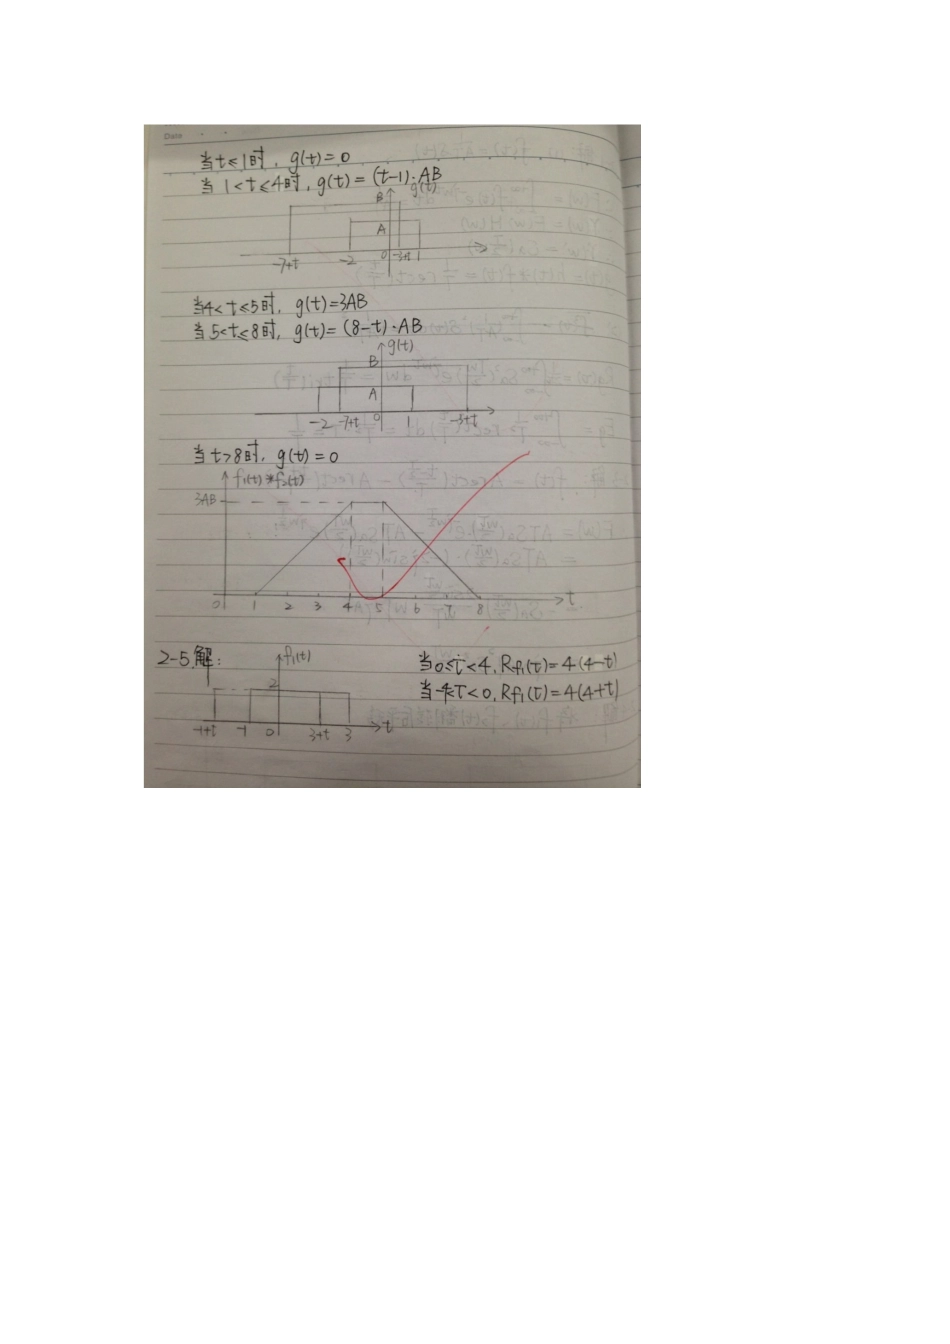 Date
当t≤1时, g(t)=0
当1<t≤4时, g(t)=(t-1)·AB
g(t)
B
A
-7+t -2 0 -3+t 1
当4<t≤5时, g(t)=3AB
当5<t≤8时, g(t)=(8-t)·AB
g(t)
B
A
-2 -7+t 0 1 -3+t
当t>8时, g(t)=0
f₁(t)*f₂(t)
3AB
0 1 2 3 4 5 6 7 8 t
2-5.解: f₁(t)
当0≤τ<4, Rf₁(τ)=4(4-τ)
2
当-4≤τ<0, Rf₁(τ)=4(4+τ)
-1+t -1 0 3+t 3 t